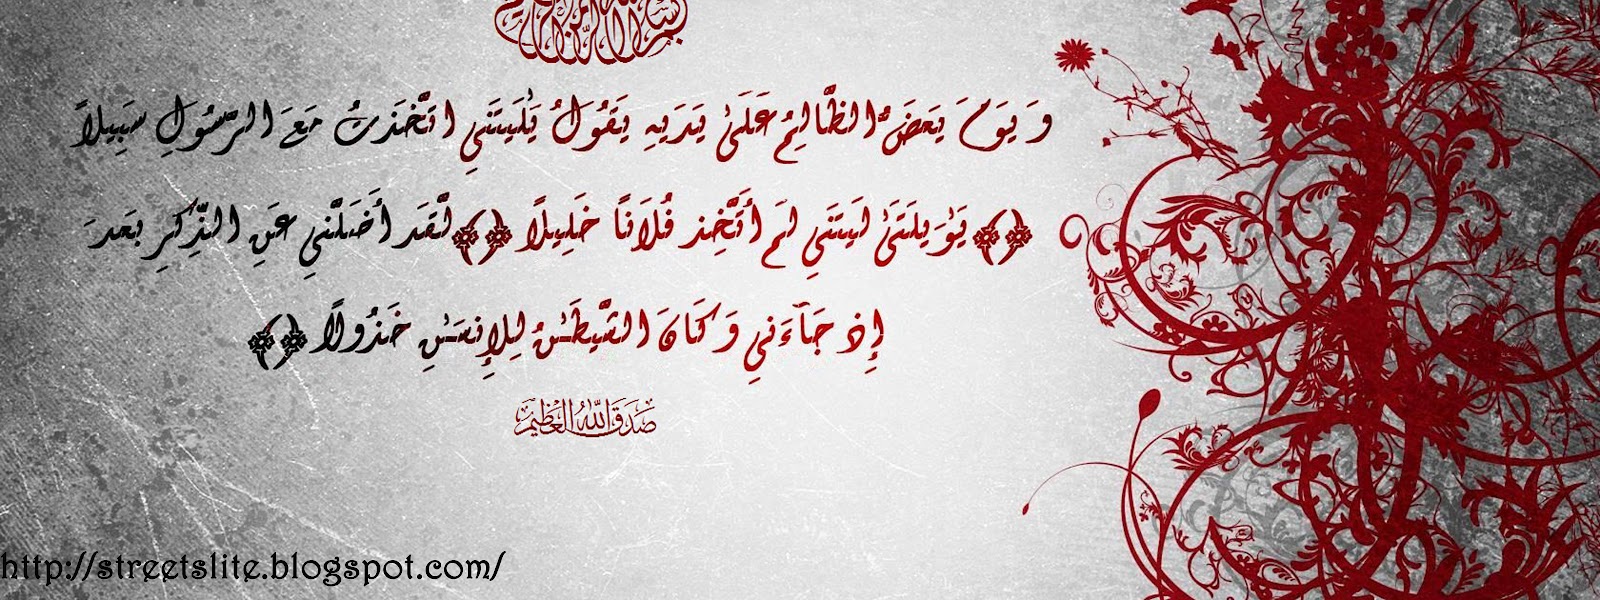 بسم الله الرحمن الرحيم
وَيَوْمَ يَعَضُّ الظَّالِمُ عَلَىٰ يَدَيْهِ يَقُولُ يَٰلَيْتَنِي اتَّخَذْتُ مَعَ الرَّسُولِ سَبِيلاً
﴿﴾ يَوَٰيْلَتَىٰ لَيْتَنِي لَمْ أَتَّخِذْ فُلَانًا خَلِيلًا ﴿﴾ لَّقَدْ أَضَلَّنِي عَنِ الذِّكْرِ بَعْدَ
إِذْ جَآءَنِي وَكَانَ الشَّيْطَٰنُ لِلْإِنسَٰنِ خَذُولًا ﴿﴾
صدق الله العظيم
http://streetslite.blogspot.com/